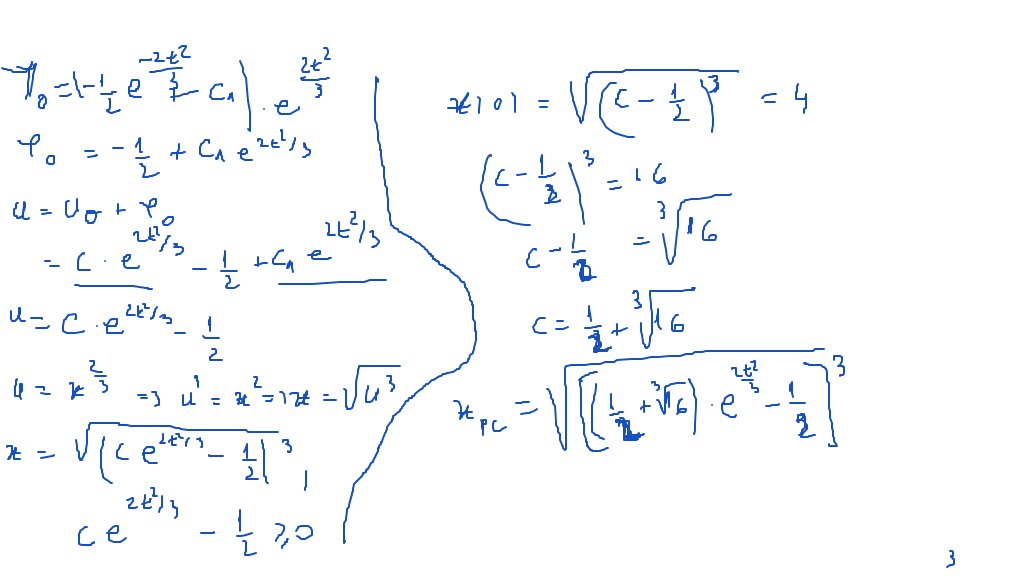 φ₀ = (-1/2 e^(-2t²/3) + C₁) · e^(2t²/3)
φ₀ = -1/2 + C₁ e^(2t²/3)
u = u₀ + φ₀
= C · e^(2t²/3) - 1/2 + C₁ e^(2t²/3)
u = C · e^(2t²/3) - 1/2
u = x^(2/3) => u³ = x² => x = √(u³)
x = √((C e^(2t²/3) - 1/2)³),
C e^(2t²/3) - 1/2 ≥ 0
x(0) = √((C - 1/2)³) = 4
(C - 1/2)³ = 16
C - 1/2 = ³√16
C = 1/2 + ³√16
x_PC = √([(1/2 + ³√16) · e^(2t²/3) - 1/2]³)
3